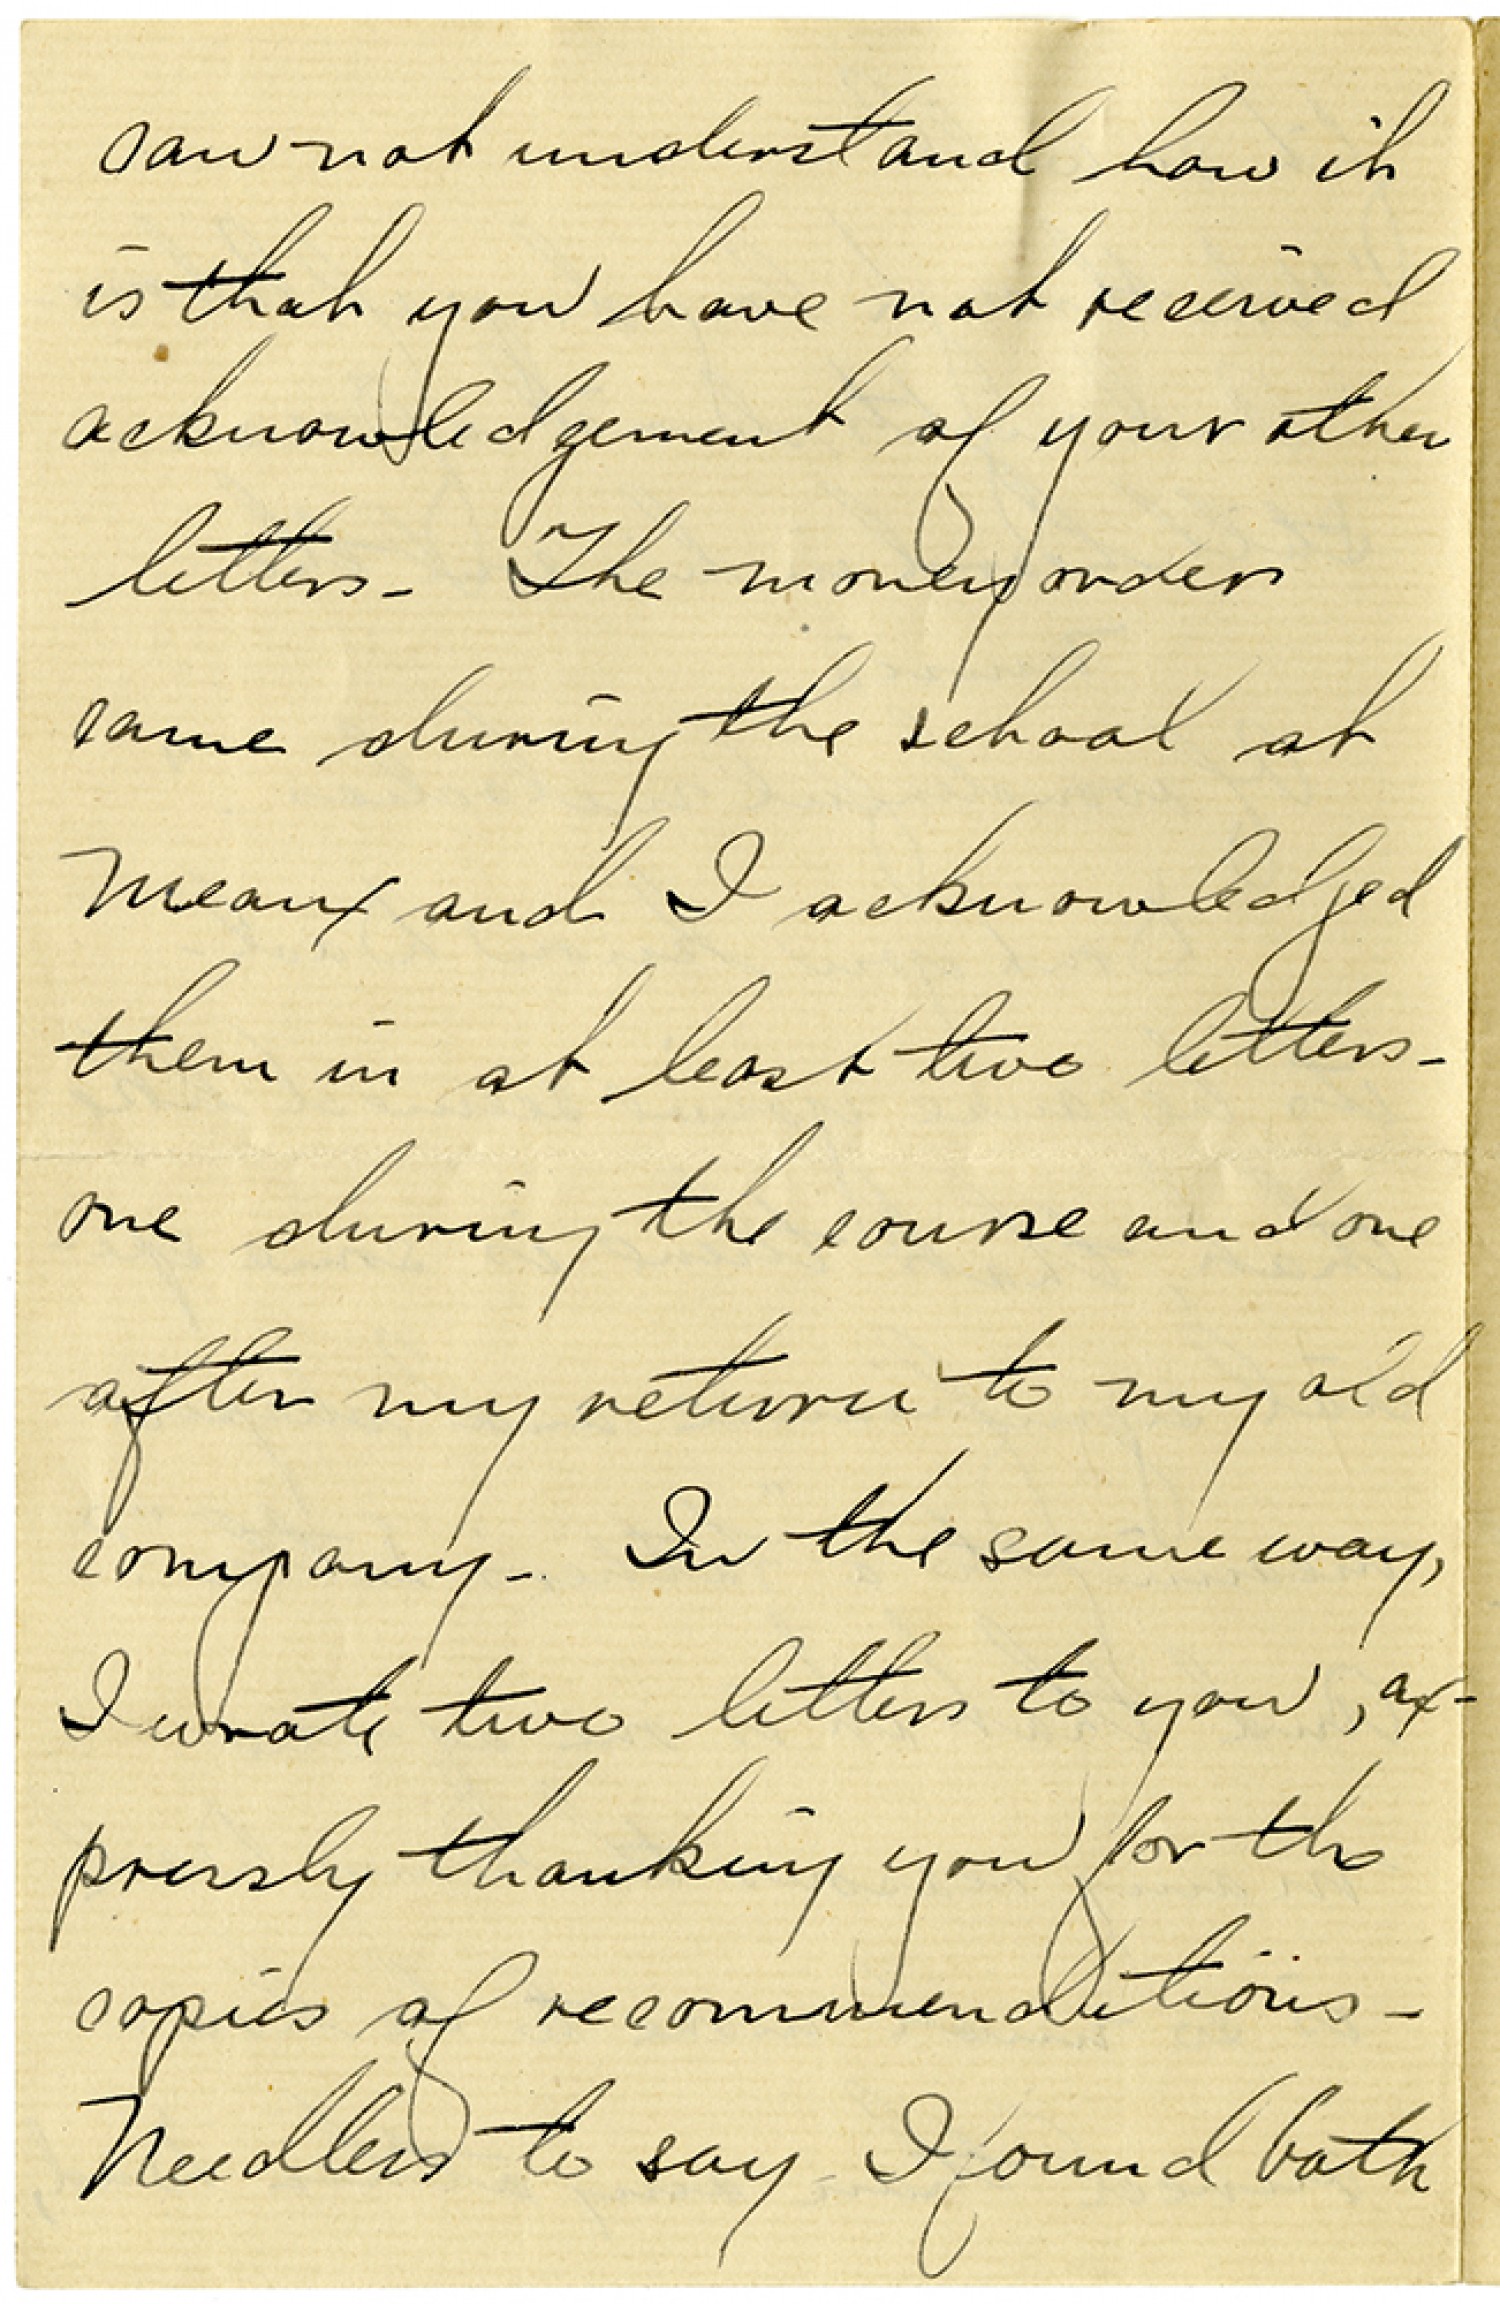 can not understand how it
is that you have not received
acknowledgement of your other
letters - The money orders
came during the school at
Meaux and I acknowledged
them in at least two letters -
one during the course and one
after my return to my old
company - In the same way,
I wrote two letters to you, ex-
pressly thanking you for the
copies of recommendations -
Needless to say I found both